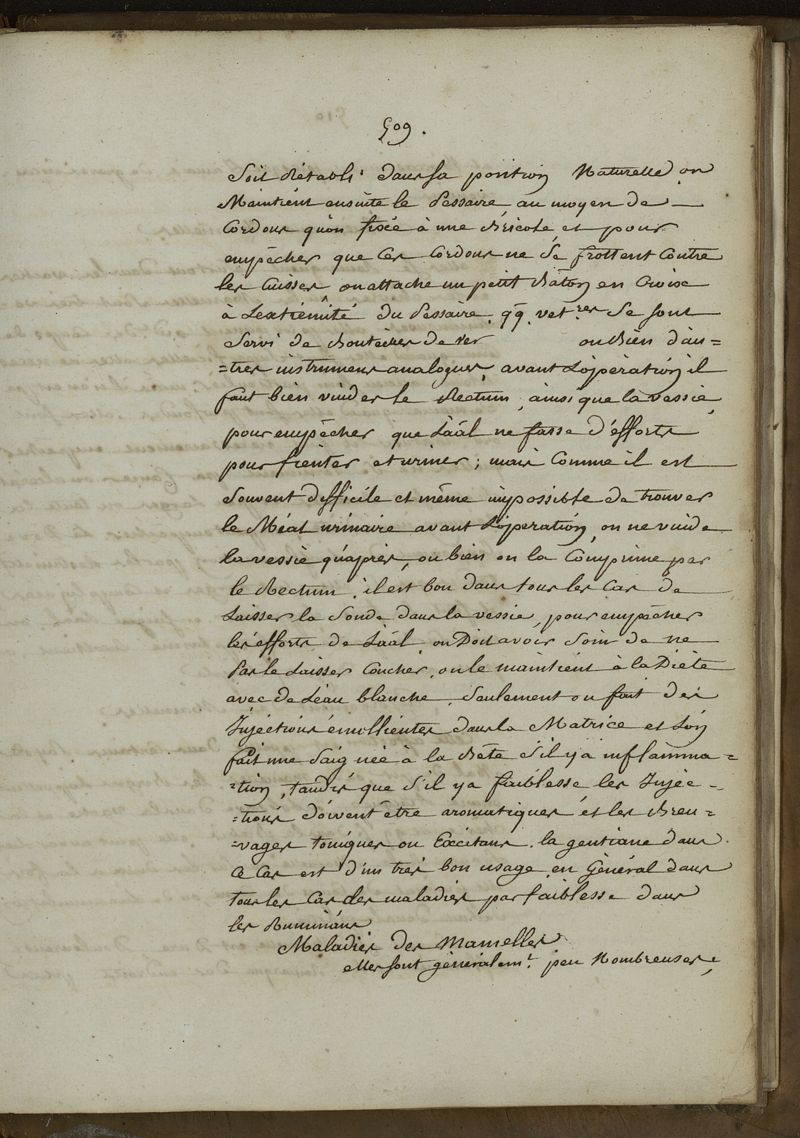 509.
Soit Rétabli dans sa position Naturelle, on
Maintient ensuite le Pessaire, au moyen de
Cordons qu'on fixée à une Bricole, et pour
empêcher que Ces Cordons ne Se frottent Contre
les Cuisses, on attache un petit Bâton en Croise
à Lextrémité du Pessaire, qq. vet.res Se sont
Servi de Bouteilles de ver ou Bien d'au=
=tres instrumens analogues, avant L'opération il
faut bien vuider le Rectum, ainsi que la vessie,
pour empêcher que L'aâl ne fasse d'efforts
pour fienter et uriner; mais Comme il est
Souvent difficile et même impossible de trouver
le Méat urinaire avant L'opération, on ne vuide
la vessie qu'après, ou bien on la Comprime par
le Rectum, il est bon dans tous les Cas de
Laisser la Sonde dans la vessie, pour empêcher
les efforts de L'aâl, on Doit avoir Soin de ne
Pas le Laisser Coucher, on le maintient à la Diète
avec de L'eau blanche, Seulement on fait des
Injections émollientes dans la Matrice et L'on
fait une Saignée à la Bête S'il y a inflamma=
=tion, tandis que S'il y a faiblesse les Injec=
=tions doivent être aromatiques et les Breu=
=vages toniques ou Excitans. la gentiane dans
Ce Cas est d'un très bon usage, en Général dans
tous les Cas des maladies par faiblesse dans
les Ruminans
Maladies des Mamelles
elles sont généralem.t peu Nombreuses,